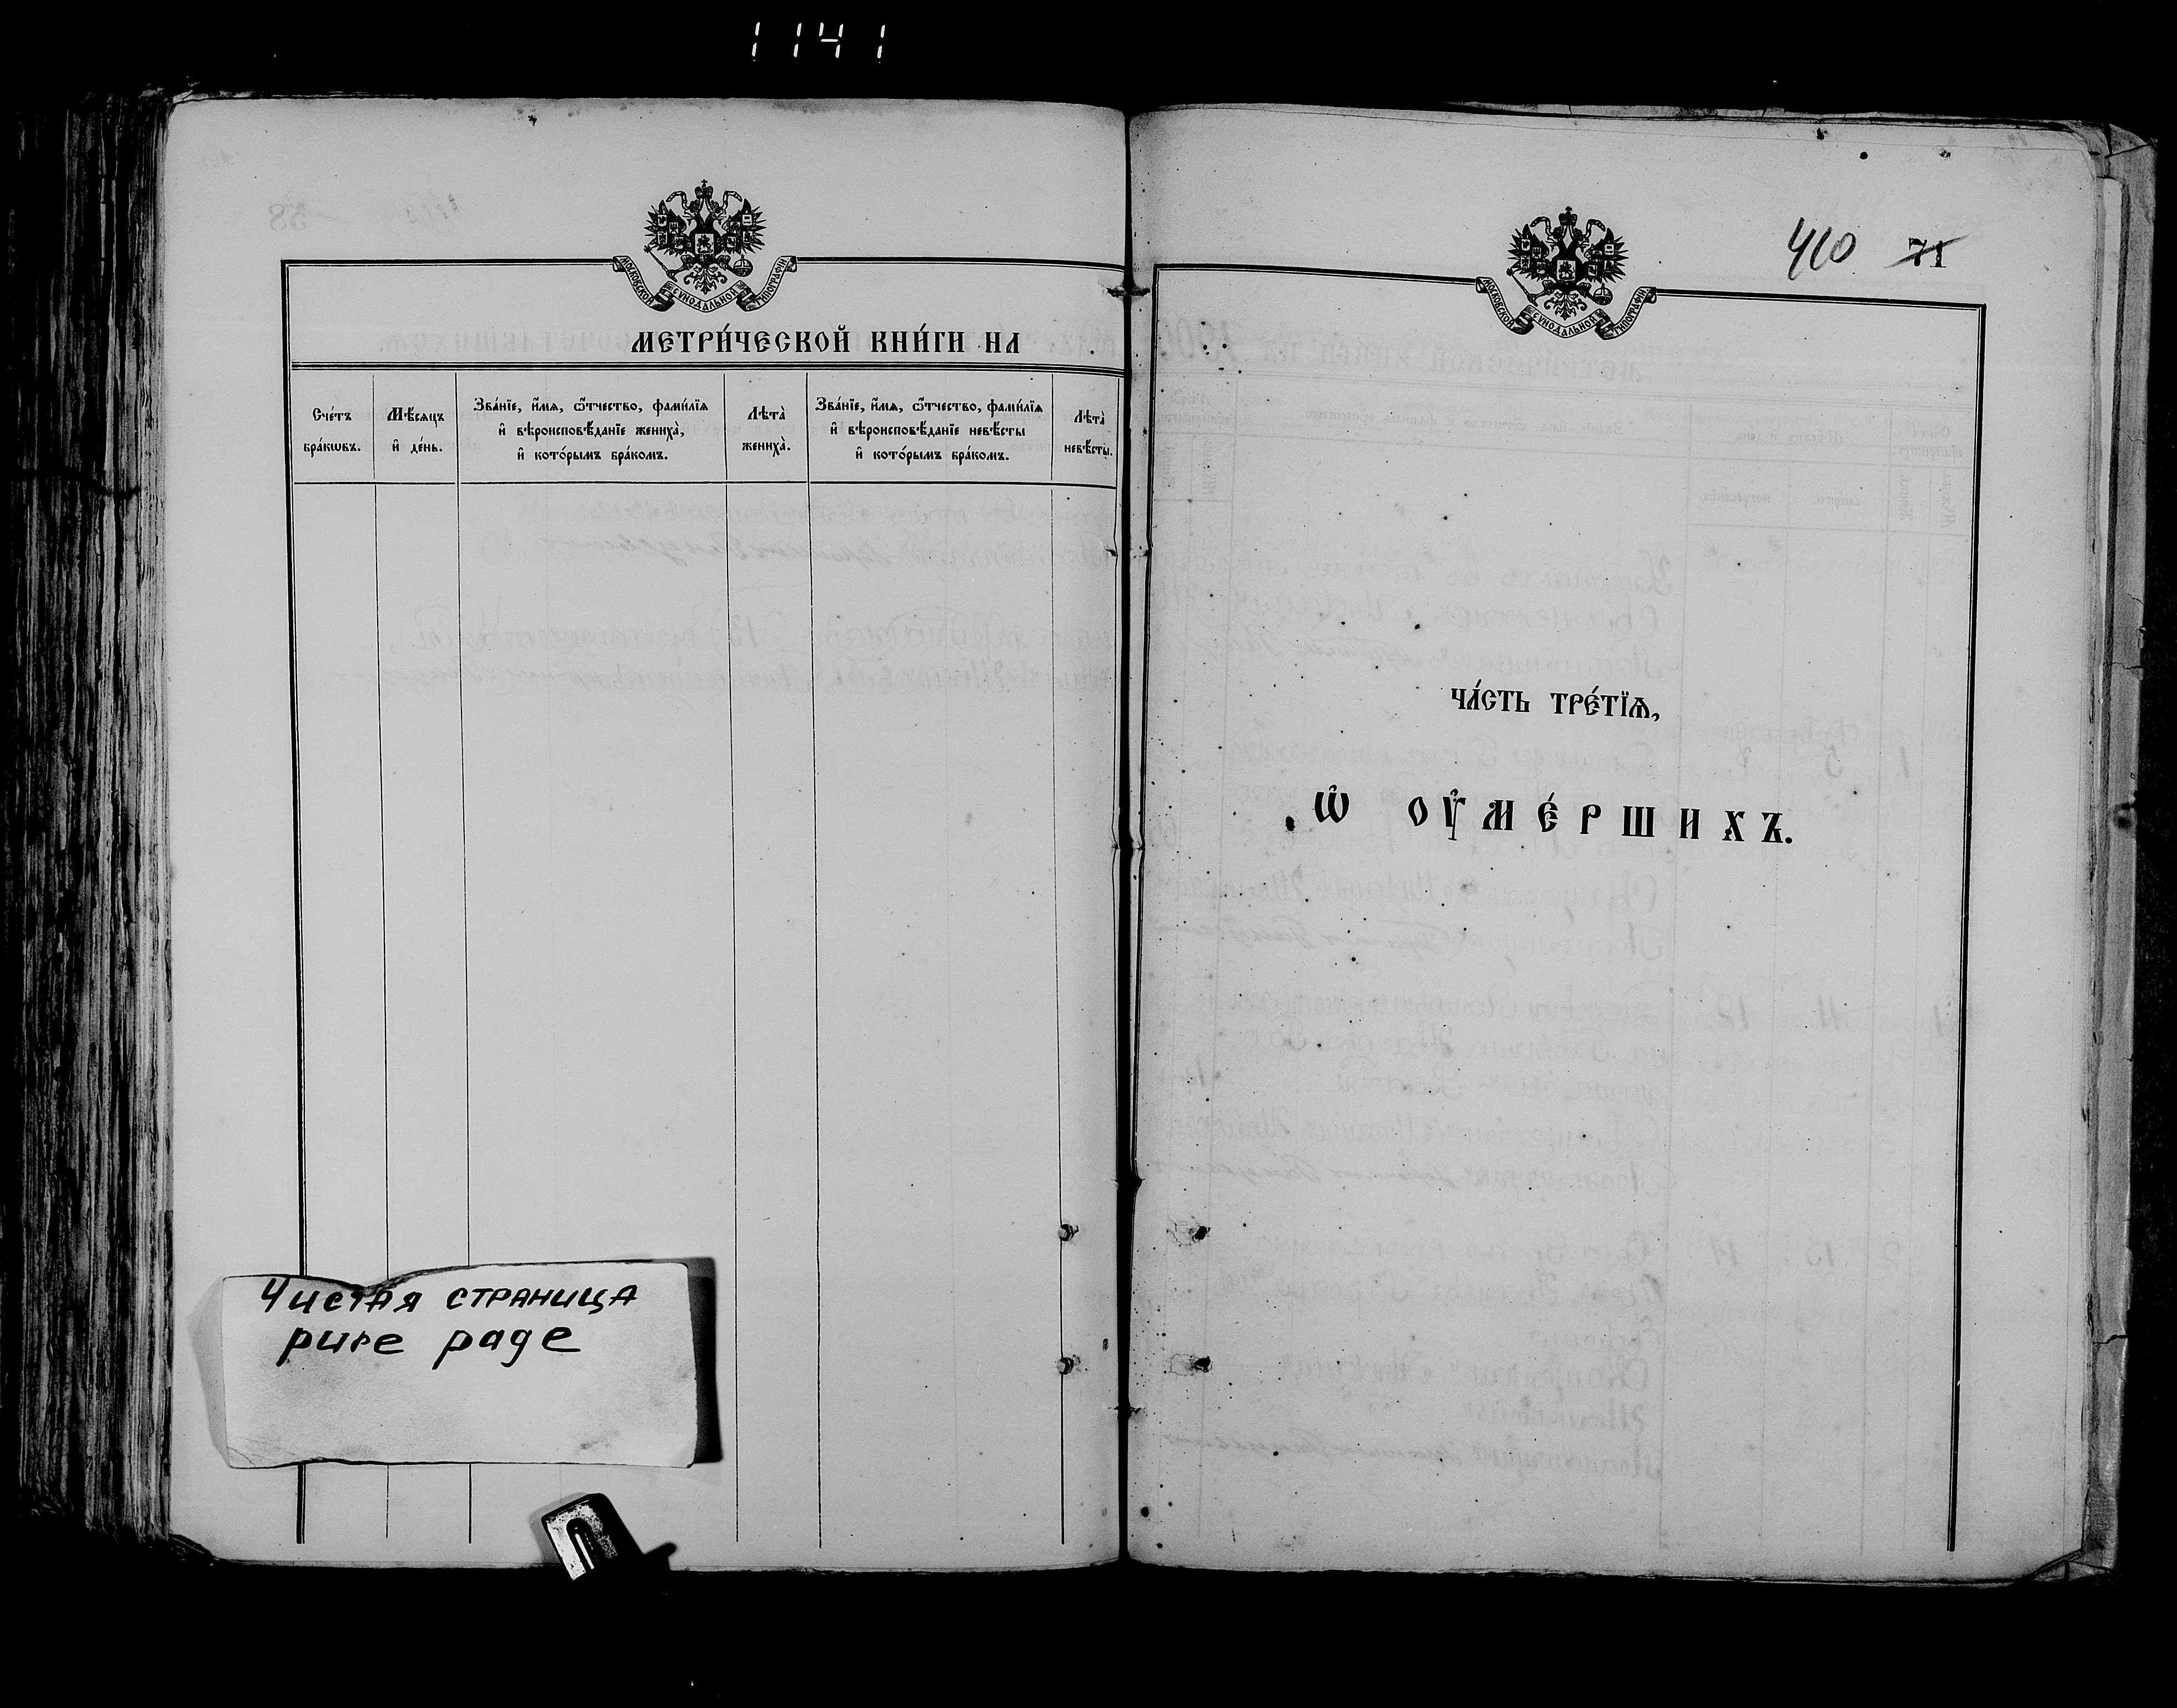 1141
МОСКОВСКОЙ СѴНОДАЛЬНОЙ ТИПОГРАФІИ
МЕТРИ́ЧЕСКОЙ КНИ́ГИ НА
Сче́тъ
бра́кѡвъ.
Мѣ́сяцъ
и҆ де́нь.
Зва́нїе, и҆́мя, ѻ҆́тчество, фами́лїя
и҆ вѣроисповѣ́данїе жениха̀,
и҆ кото́рымъ бра́комъ.
Лѣта̀
жениха̀.
Зва́нїе, и҆́мя, ѻ҆́тчество, фами́лїя
и҆ вѣроисповѣ́данїе невѣ́сты
и҆ кото́рымъ бра́комъ.
Лѣта̀
невѣ́сты.
Чистая страница
pure page
410 71
МОСКОВСКОЙ СѴНОДАЛЬНОЙ ТИПОГРАФІИ
ЧА́СТЬ ТРЕ́ТЇѦ,
Ѡ҆ ОУ҆МЕ́РШИХЪ.